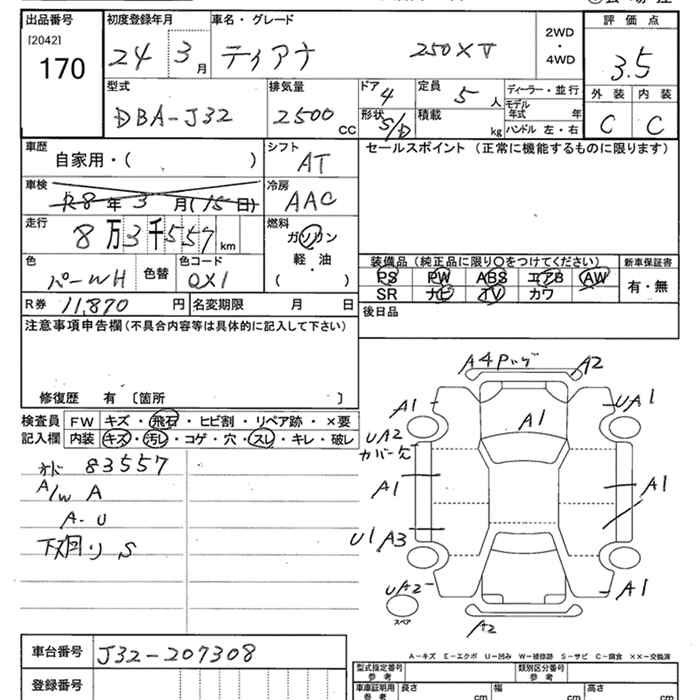 出品番号 初度登録年月 車名・グレード 2WD ・ 4WD 評価点
[2042]
170 24 3月 ティアナ 250XV 3.5
型式 排気量 ドア 定員 ディーラー・並行 外装 内装
DBA-J32 2500 CC 4 5人 モデル年式 年 C C
形状 S/D 積載 kg ハンドル 左・右
車歴 シフト セールスポイント (正常に機能するものに限ります)
自家用・( ) AT
車検 冷房
R8年3月(15日) AAC
走行 燃料
8万3千557km ガソリン
軽・油
( )
色 色替 色コード 装備品 (純正品に限り○をつけてください) 新車保証書
パールWH QX1 PS PW ABS エアB AW 有・無
SR ナビ TV カワ
R券 11,870円 名変期限 月 日 後日品
注意事項申告欄 (不具合内容等は具体的に記入して下さい)
修復歴 有 〔箇所 〕
検査員 FW キズ・飛石・ヒビ割・リペア跡・×要
記入欄 内装 キズ・汚レ・コゲ・穴・スレ・キレ・破レ
83557
A/W A
A-U
下廻り S
A4 Pッグ A2
A1 A1 UA1
UA2
カバー欠
A1 A1
U1 A3
UA2 A1
スペア
A2
A-キズ E-エクボ U-凹み W-補修跡 S-サビ C-腐食 ××-交換済
車台番号 J32-207308
登録番号
型式指定番号 参考 類別区分番号 参考
車庫証明用 参考 長さ cm 幅 cm 高さ cm